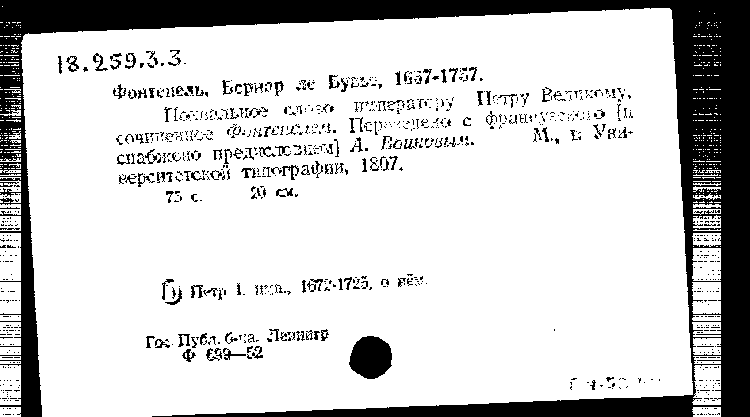 18.259.3.3.
Фонтенель, Бернар ле Бувье, 1657-1757.
Похвальное слово императору Петру Великому,
сочиненное Фонтенелем. Переведено с французского [и
снабжено предисловием] А. Воиновым. М., в Уни-
верситетской типографии, 1807.
75 с. 20 см.
Петр I, имп., 1672-1725, о нём.
Гос. Публ. б-ка. Ленингр
Ф 699—52